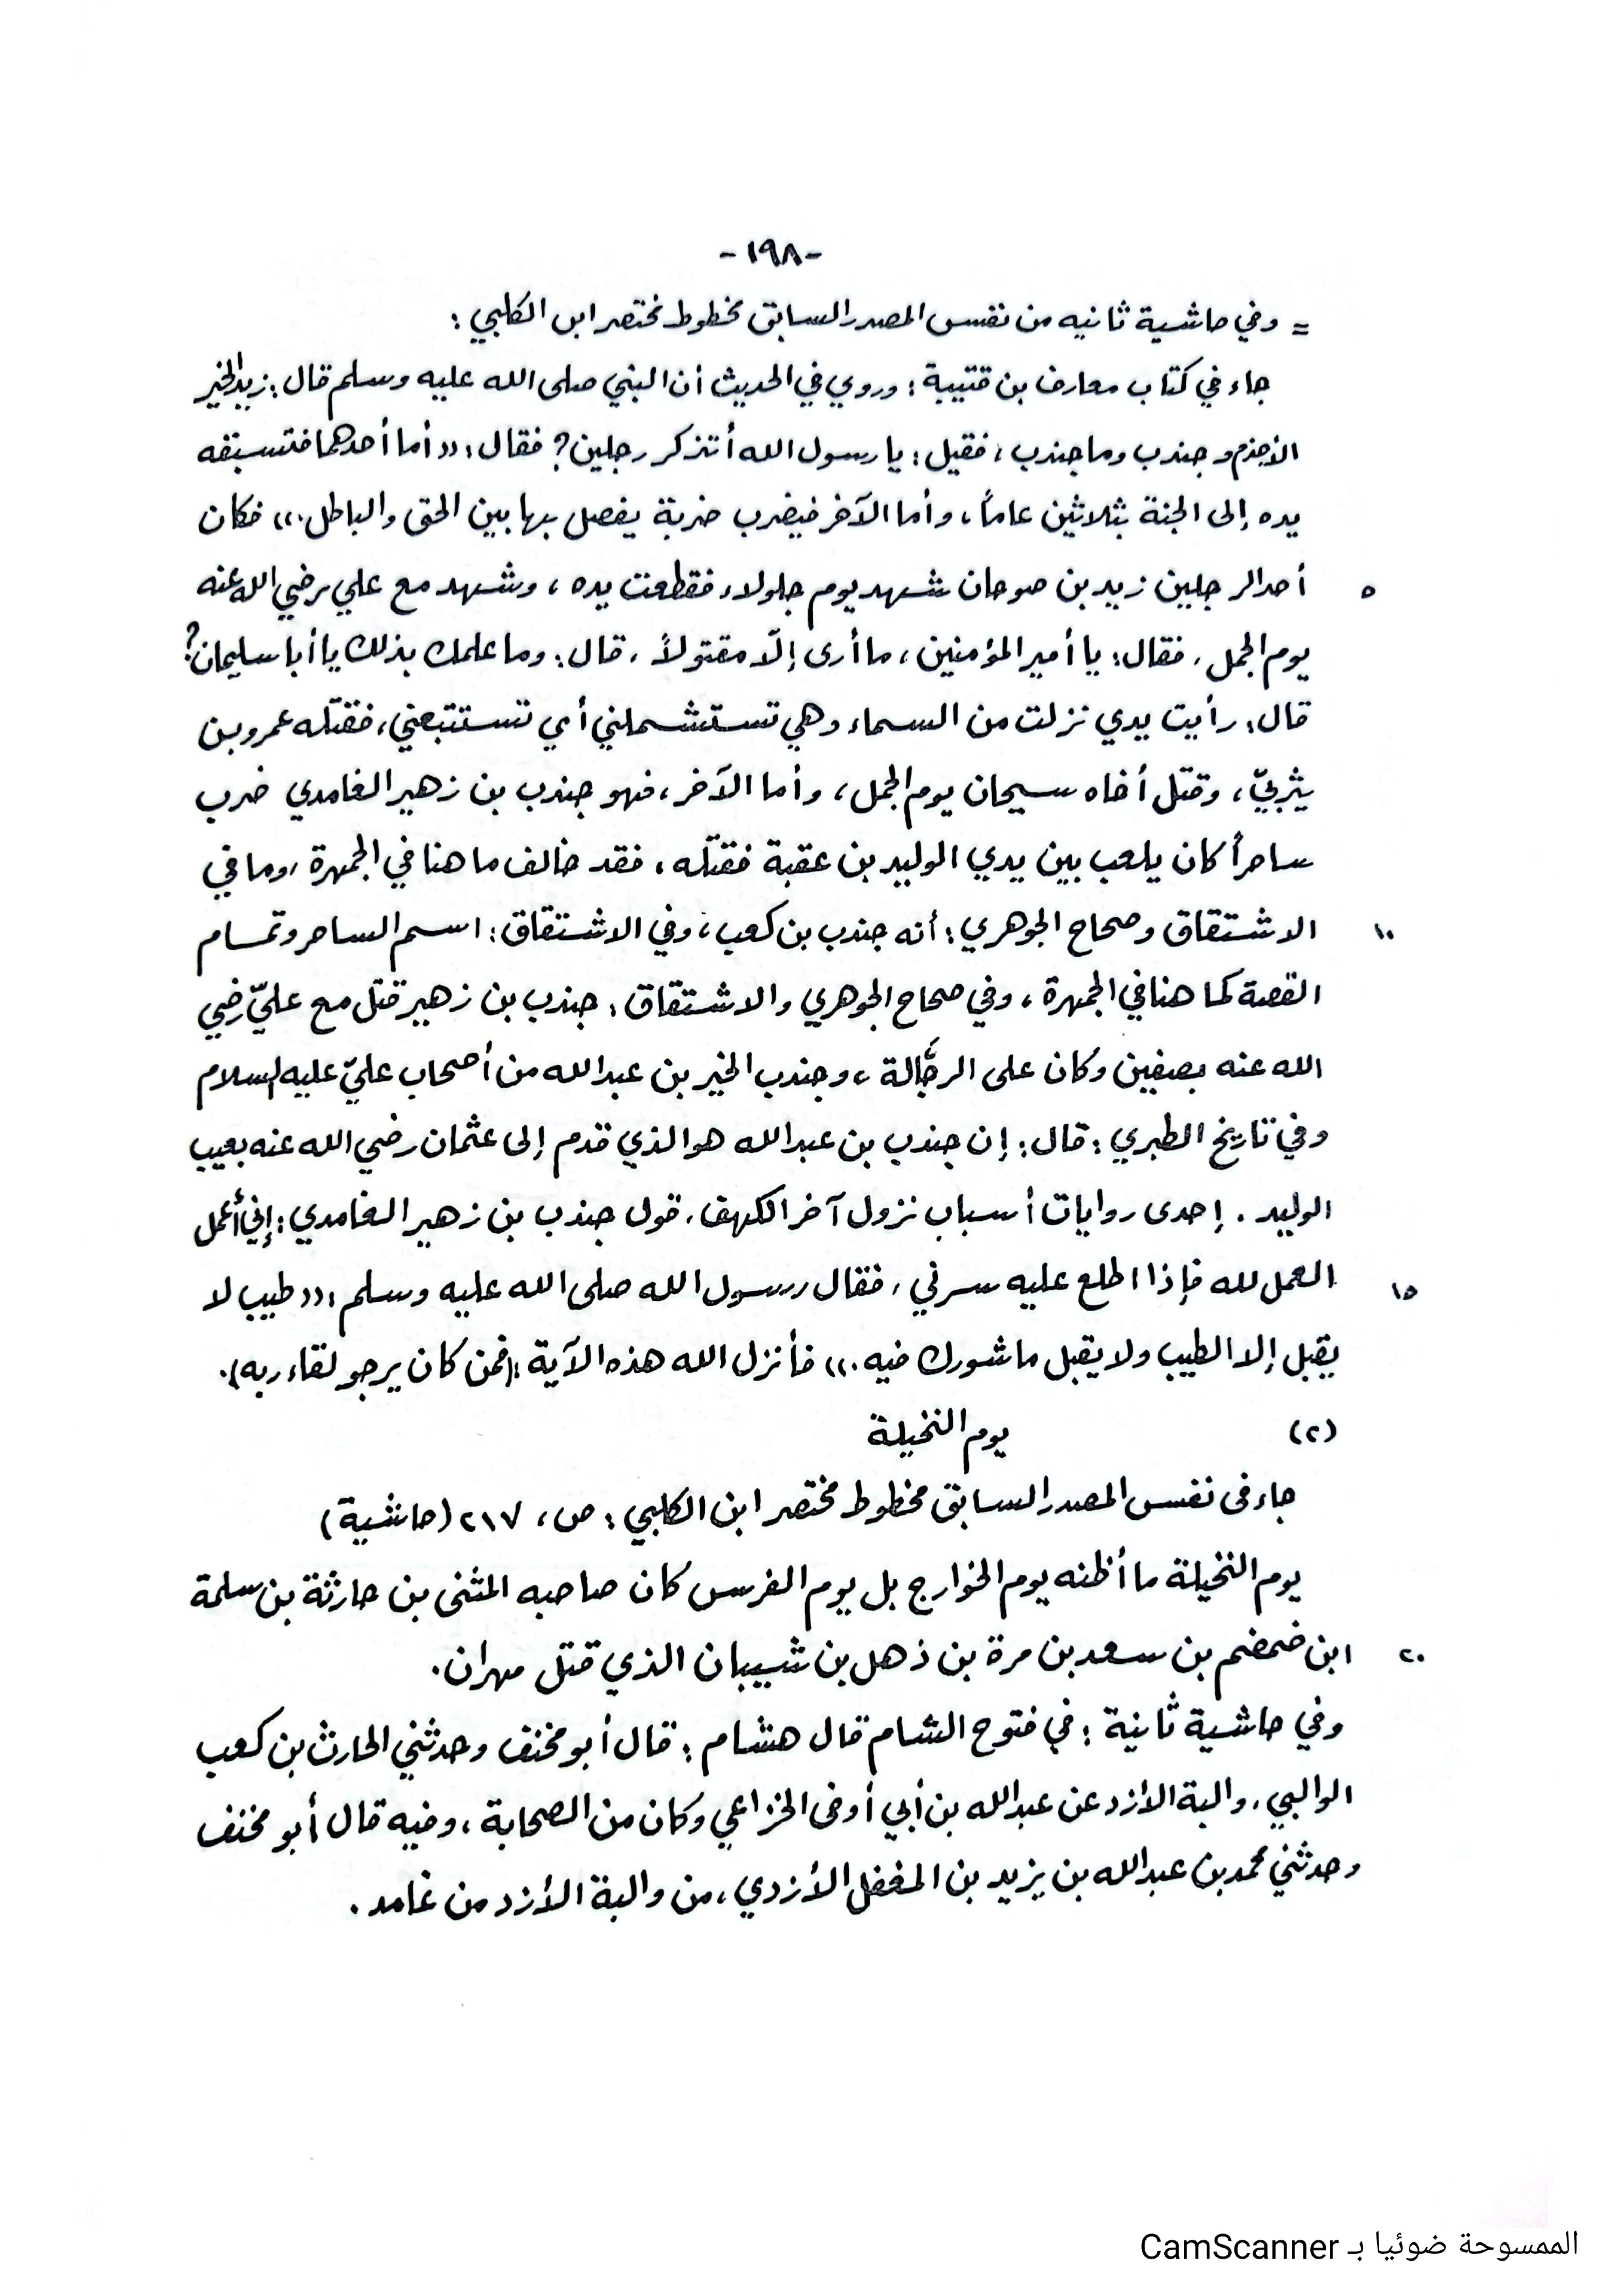 -١٩٨-
= وفي حاشية ثانيه من نفس المصدر السابق مخطوط مختصر ابن الكلبي :
جاء في كتاب معارف بن قتيبة : وروي في الحديث أن النبي صلى الله عليه وسلم قال : زيد الخير
الأجذم وجندب وما جندب ، فقيل : يا رسول الله أتذكر رجلين ؟ فقال : ((أما أحدهما فتسبقه
يده إلى الجنة بثلاثين عاماً ، وأما الآخر فيضرب ضربة يفصل بها بين الحق والباطل .)) فكان
٥ أحد الرجلين زيد بن صوحان شهد يوم جلولاء فقطعت يده ، وشهد مع علي رضي الله عنه
يوم الجمل ، فقال : يا أمير المؤمنين ، ما أرى إلّا مقتولاً ، قال : وما علمك بذلك يا أبا سليمان ؟
قال : رأيت يدي نزلت من السماء وهي تستشملني أي تستتبعني ، فقتله عمرو بن
يثربيّ ، وقتل أخاه سيحان يوم الجمل ، وأما الآخر ، فهو جندب بن زهير الغامدي ضرب
ساحراً كان يلعب بين يدي الوليد بن عقبة فقتله ، فقد خالف ما هنا في الجمهرة ، وما في
١٠ الاشتقاق وصحاح الجوهري : أنه جندب بن كعب ، وفي الاشتقاق : اسم الساحر وتمام
القصة كما هنا في الجمهرة ، وفي صحاح الجوهري والاشتقاق : جندب بن زهير قتل مع عليّ رضي
الله عنه بصفين وكان على الرجّالة ، وجندب الخير بن عبد الله من أصحاب عليّ عليه السلام
وفي تاريخ الطبري : قال : إن جندب بن عبد الله هو الذي قدم إلى عثمان رضي الله عنه بعيب
الوليد . إحدى روايات أسباب نزول آخر الكهف ، قول جندب بن زهير الغامدي : إني أعمل
١٥ العمل لله فإذا اطلع عليه سرني ، فقال رسول الله صلى الله عليه وسلم : ((طيب لا
يقبل إلا الطيب ولا يقبل ما شورك فيه .)) فأنزل الله هذه الآية : (فمن كان يرجو لقاء ربه) .
(٢) يوم النخيلة
جاء فى نفس المصدر السابق مخطوط مختصر ابن الكلبي : ص ، ٢١٧ (حاشية)
يوم النخيلة ما أظنه يوم الخوارج بل يوم الفرس كان صاحبه المثنى بن حارثة بن سلمة
٢٠ ابن ضمضم بن سعد بن مرة بن ذهل بن شيبان الذي قتل مهران .
وفي حاشية ثانية : في فتوح الشام قال هشام : قال أبو مخنف وحدثني الحارث بن كعب
الوالبي ، والبة الأزد عن عبد الله بن أبي أوفى الخزاعي وكان من الصحابة ، وفيه قال أبو مخنف
وحدثني محمد بن عبد الله بن يزيد بن المغفل الأزدي ، من والبة الأزد من غامد .
الممسوحة ضوئيا بـ CamScanner